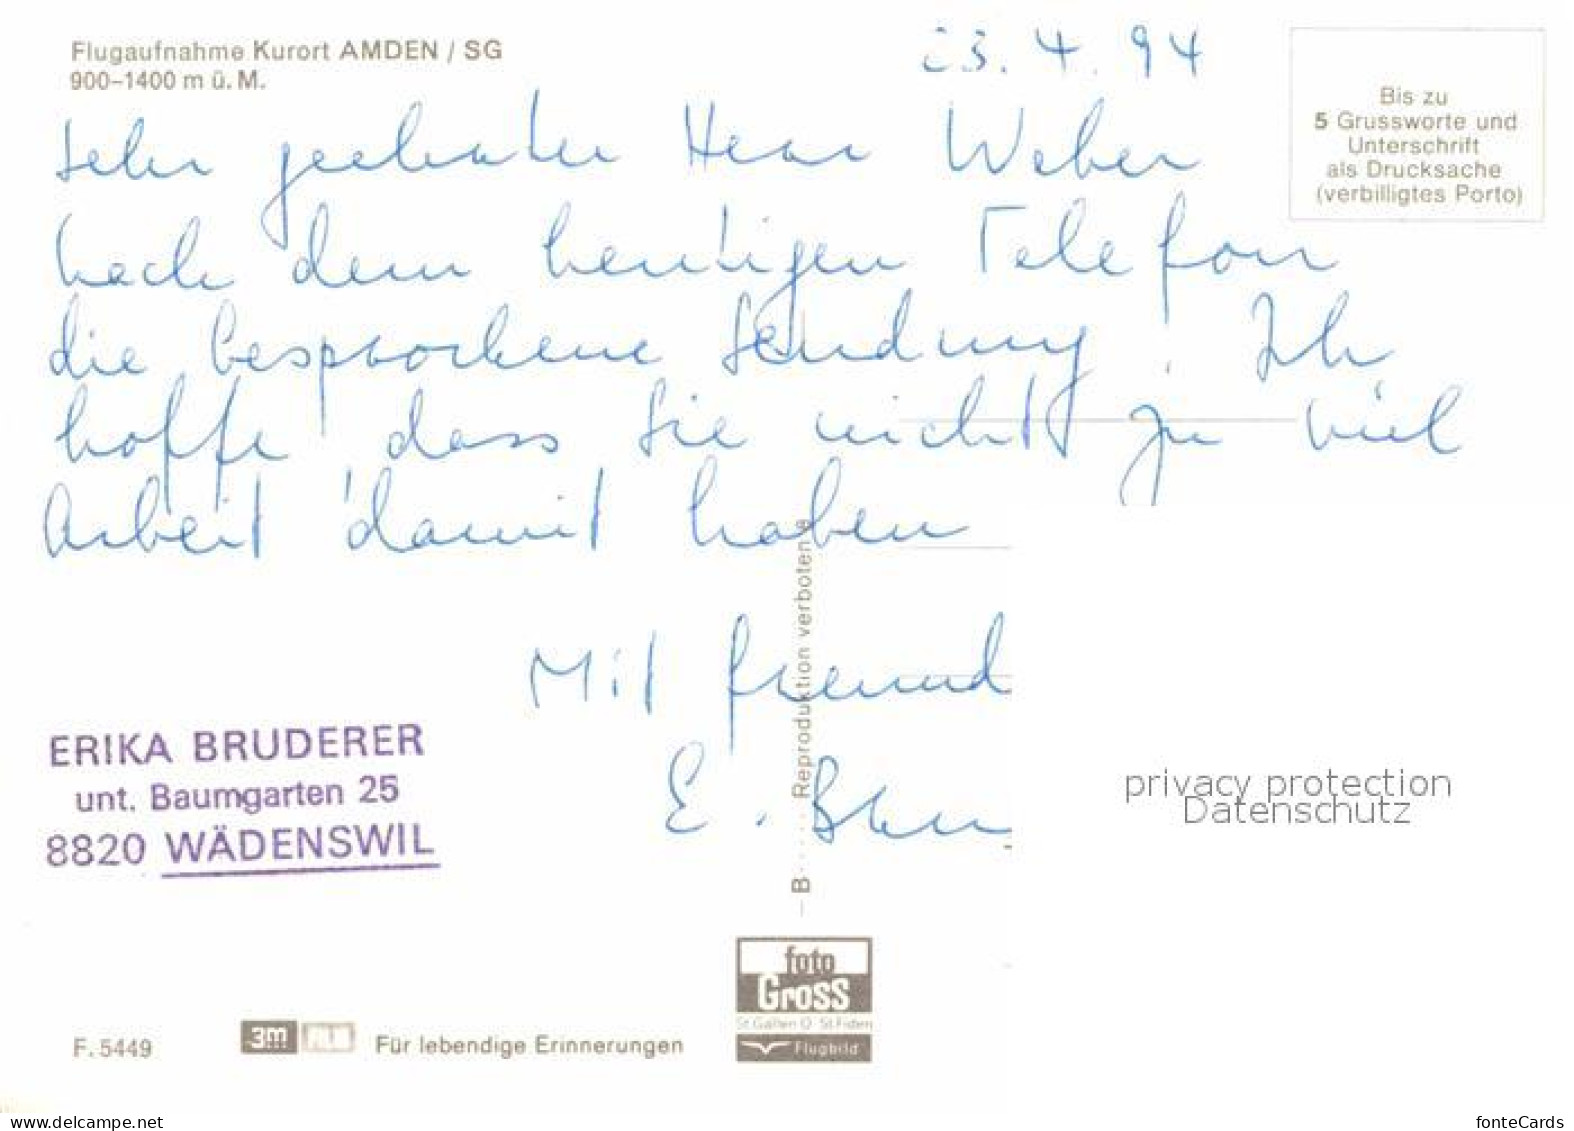 Flugaufnahme Kurort AMDEN / SG
900–1400 m ü. M.
23. 4. 94
Bis zu
5 Grussworte und
Unterschrift
als Drucksache
(verbilligtes Porto)
Sehr geehrter Herr Weber
nach dem heutigen Telefon
die besprochene Sendung. Ich
hoffe, dass Sie nicht zu viel
Arbeit damit haben
Mit freund
E.
Reproduktion verboten
B
ERIKA BRUDERER
unt. Baumgarten 25
8820 WÄDENSWIL
privacy protection
Datenschutz
foto
Gross
St. Gallen O St. Fiden
Flugbild
F. 5449
3m FILM
Für lebendige Erinnerungen
www.delcampe.net
fonteCards